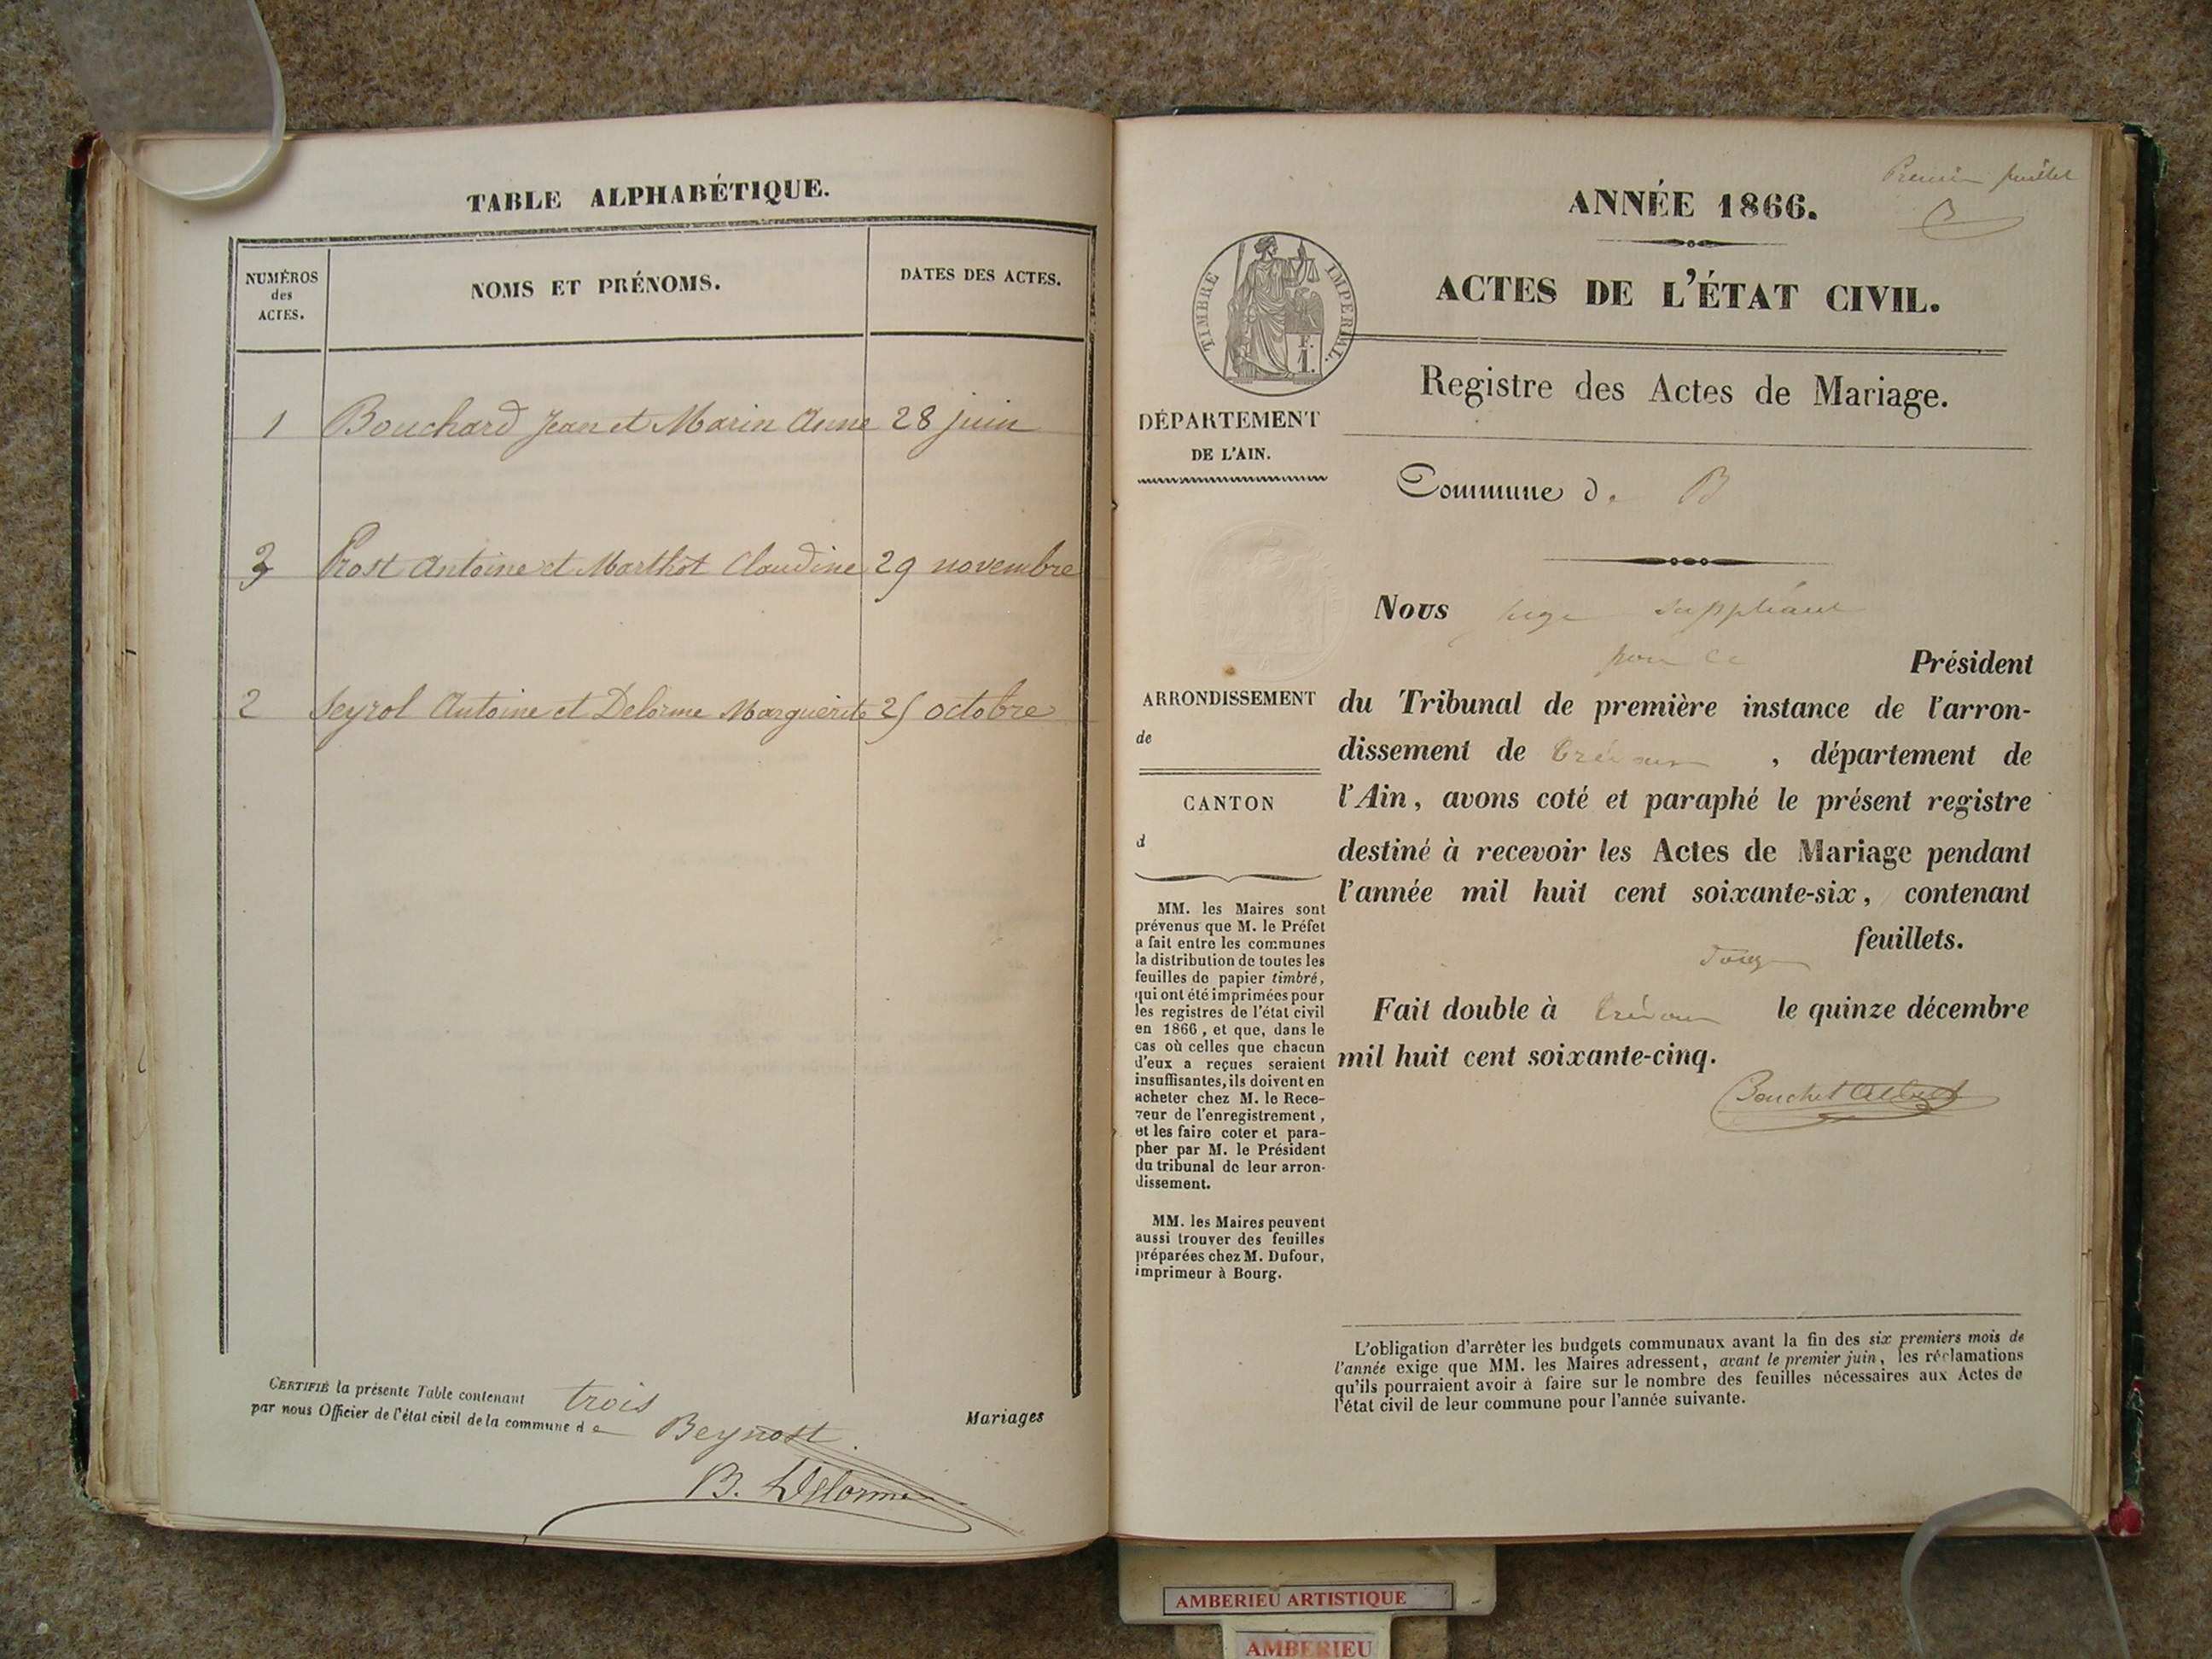 TABLE ALPHABÉTIQUE.
NUMÉROS
des
ACTES.
NOMS ET PRÉNOMS.
DATES DES ACTES.
1 Bouchard Jean et Marin Anne 28 juin
3 Prost Antoine et Marthot Claudine 29 novembre
2 Seyrol Antoine et Delorme Marguerite 25 octobre
CERTIFIÉ la présente Table contenant trois Mariages
par nous Officier de l'état civil de la commune de Beynost.
B. Delorme
Premier feuillet
B
ANNÉE 1866.
ACTES DE L'ÉTAT CIVIL.
TIMBRE IMPERIAL.
Registre des Actes de Mariage.
DÉPARTEMENT
DE L'AIN.
Commune d. B
Nous juge suppléant
pour le Président
ARRONDISSEMENT
de
CANTON
d
du Tribunal de première instance de l'arron-
dissement de Trévoux, département de
l'Ain, avons coté et paraphé le présent registre
destiné à recevoir les Actes de Mariage pendant
l'année mil huit cent soixante-six, contenant
feuillets.
Fait double à Trévoux le quinze décembre
mil huit cent soixante-cinq.
MM. les Maires sont
prévenus que M. le Préfet
a fait entre les communes
la distribution de toutes les
feuilles de papier timbré,
qui ont été imprimées pour
les registres de l'état civil
en 1866, et que, dans le
cas où celles que chacun
d'eux a reçues seraient
insuffisantes, ils doivent en
acheter chez M. le Rece-
veur de l'enregistrement,
et les faire coter et para-
pher par M. le Président
du tribunal de leur arron-
dissement.
MM. les Maires peuvent
aussi trouver des feuilles
préparées chez M. Dufour,
imprimeur à Bourg.
L'obligation d'arrêter les budgets communaux avant la fin des six premiers mois de
l'année exige que MM. les Maires adressent, avant le premier juin, les réclamations
qu'ils pourraient avoir à faire sur le nombre des feuilles nécessaires aux Actes de
l'état civil de leur commune pour l'année suivante.
AMBERIEU ARTISTIQUE
AMBERIEU